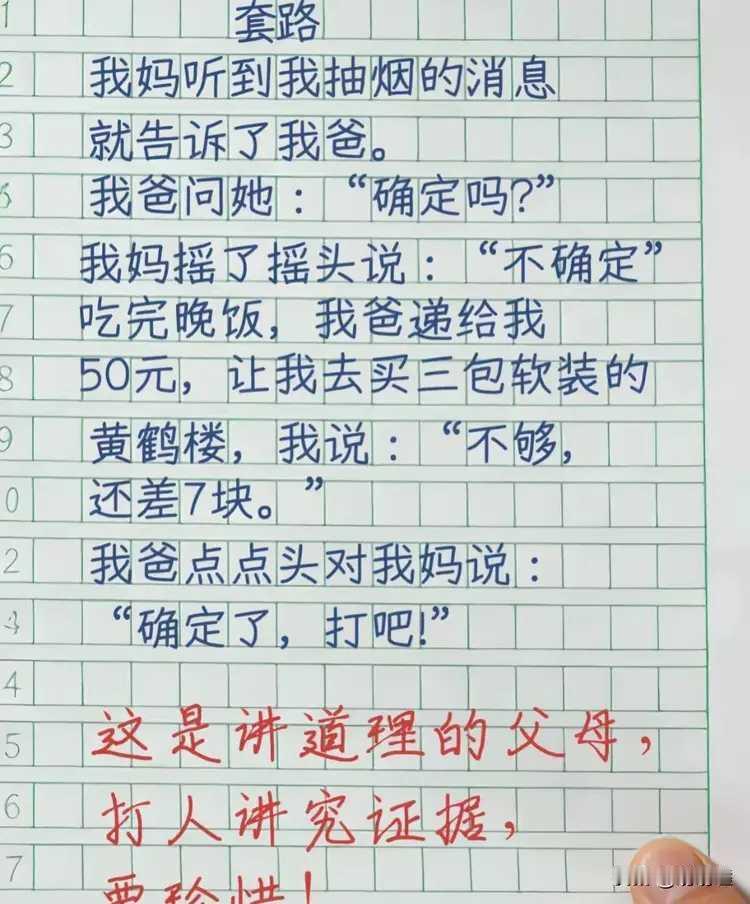 套路
我妈听到我抽烟的消息
就告诉了我爸。
我爸问她：“确定吗?”
我妈摇了摇头说：“不确定”
吃完晚饭，我爸递给我
50元，让我去买三包软装的
黄鹤楼，我说：“不够，
还差7块。”
我爸点点头对我妈说：
“确定了，打吧!”
这是讲道理的父母，
打人讲究证据，
要珍惜！